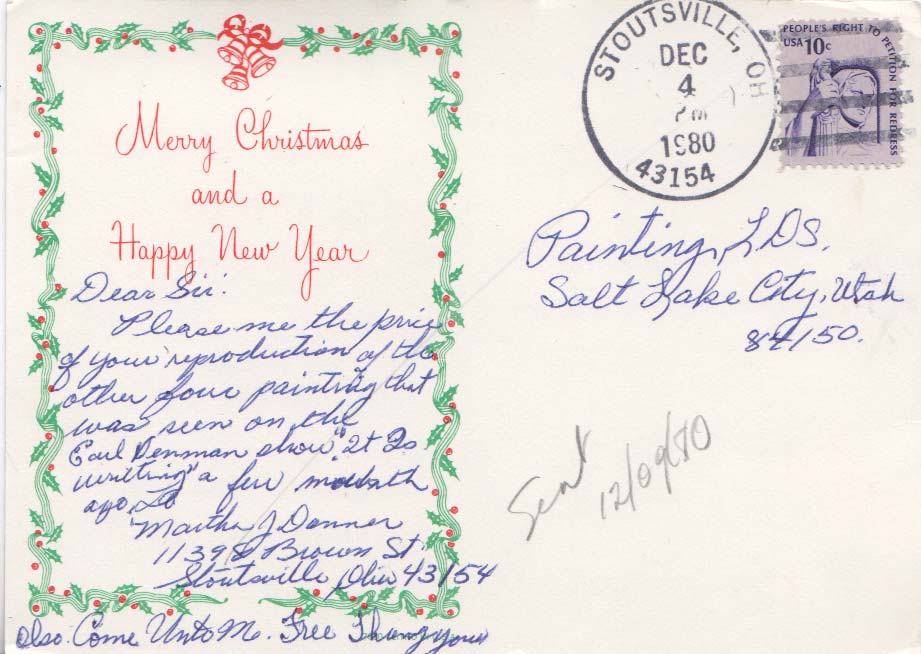 Merry Christmas
and a
Happy New Year
Dear Sir:
Please me the price
of your reproduction of the
other four painting that
was seen on the
Earl Denman show" It Is
writing" a few
ago.
Martha J Donner
Brown St.
Stoutsville Ohio 43154
also. Come Unto Me. Free
STOUTSVILLE, OH
DEC
4
PM
1980
43154
PEOPLE'S RIGHT TO PETITION FOR REDRESS
USA 10c
Painting, LDS.
Salt Lake City, Utah
84150.
Sent
12/09/80